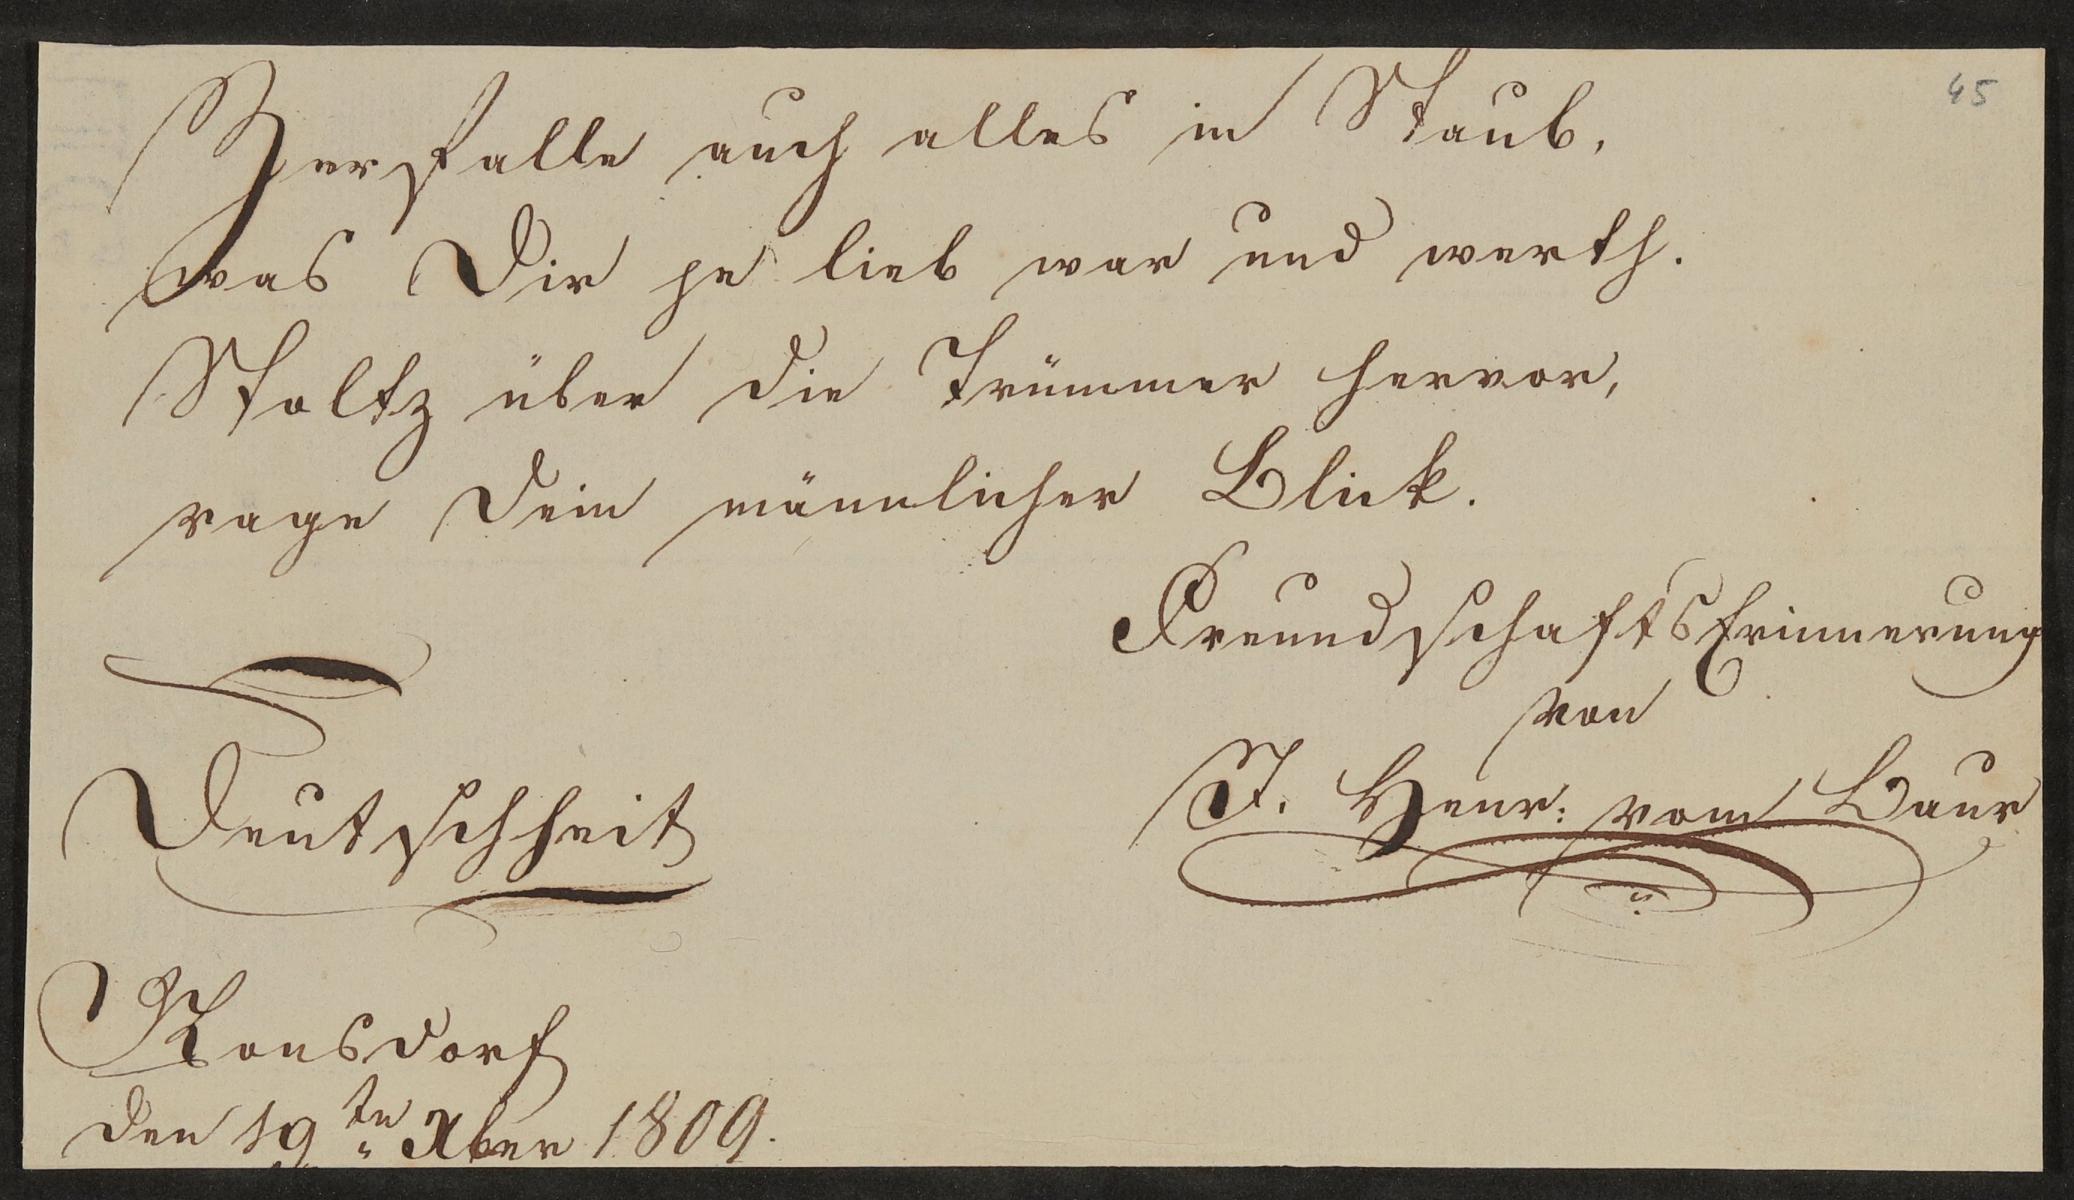 45
Zerfalle auch alles in Staub,
was Dir je lieb war und werth.
Stoltz über die Trümmer hervor,
rage Dein männlicher Blick.
FreundschaftsErinnerung
von
J. Henr: vom Baur
Deutschheit
Ronsdorf
den 19ten Xber 1809.